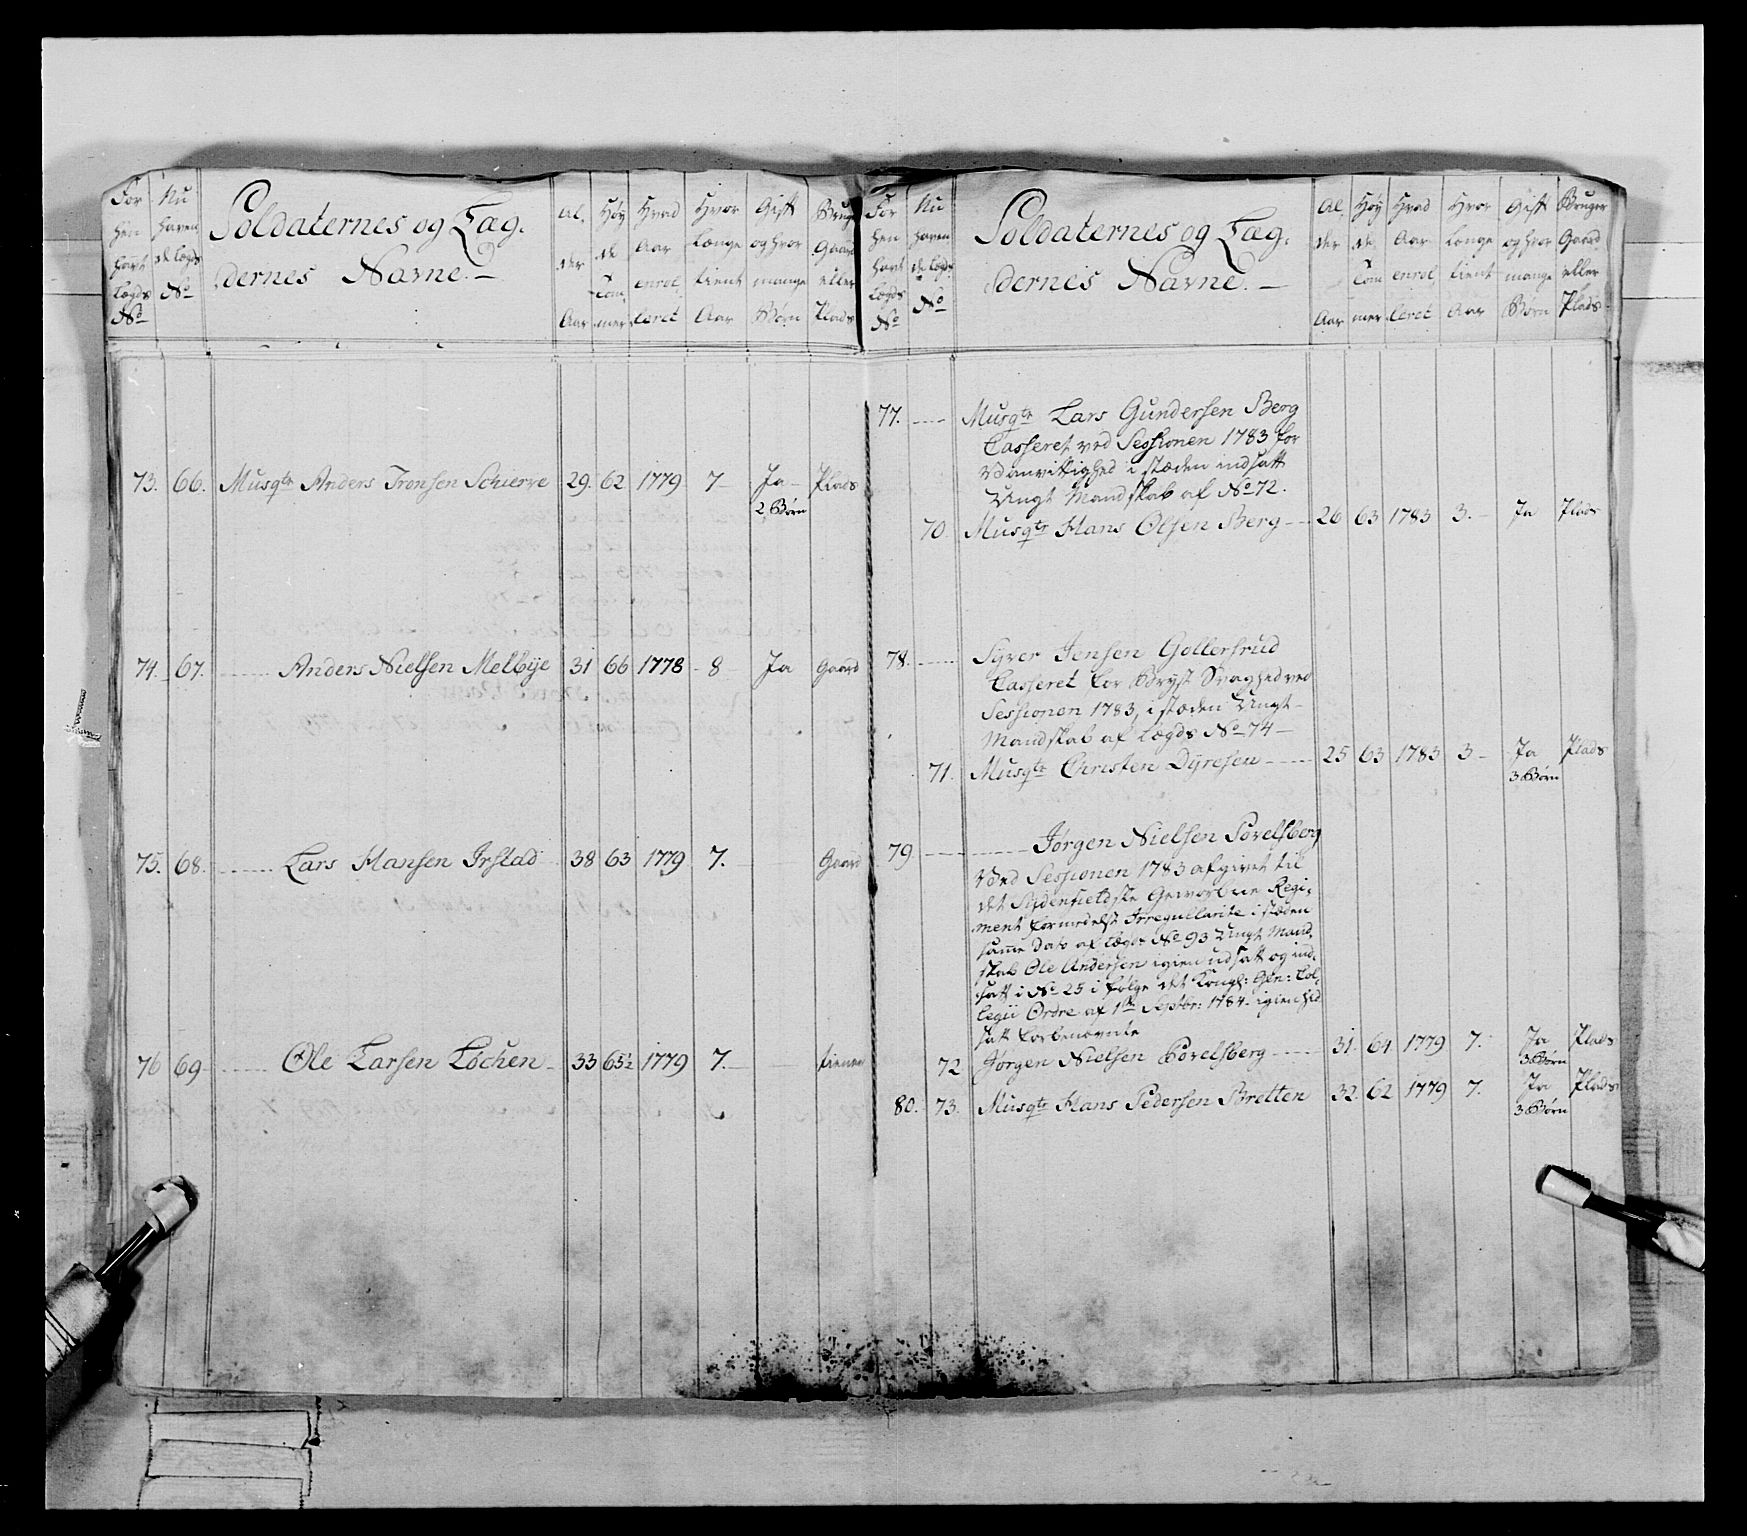 For hen havt Lægds No
Nu haven de Lægds No
Soldaternes og Læg,
dernes Navne. —
Al, der Aar
Høy de Tom, mer
Hvad Aar enrol, leret
Hvor Længe tient Aar
Gift og hvor mange Børn
Bruger Gaard eller Plads
73. 66. Musqtr Anders Tronsen Schierve 29. 62 1779 7 Ja Plads
2 Børn
74. 67. Anders Nielsen Melbÿe 31 66 1778 8 Ja Gaard
75. 68. Lars Hansen Irstad 38 63 1779 7. Gaard
76 69 Ole Larsen Løchen 33 65½ 1779 7. tiener
For hen havt Lægds No
Nu haven de Lægds No
Soldaternes og Læg,
dernes Navne. —
Al, der Aar
Høy de, Tom mer
Hvad Aar enrol, leret
Hvor Længe tient Aar
Gift og hvor mange Børn
Bruger Gaard eller Plads
77. Musqtr Lars Gundersen Berg
Casseret ved Sessionen 1783 for
Vanvittighed i stæden indsatt
Ungt Mandskab af No 72.
70. Musqtr Hans Olsen Berg 26 63 1783 3. Ja Plads
78. Syver Jensen Gollersrud
Casseret for Bryst Svaghed ved
Sessionen 1783, i stæden Ungt
Mandskab af Lægds No 74
71. Musqtr Christen Dÿresen 25 63 1783 3 Ja Plads
3 Børn
79 Jørgen Nielsen Sørelsberg
Ved Sessionen 1783 afgivet til
det Sydenfieldske Geworbne Regi,
ment formedelst Irregullarite i stæden
samme Dato af Lægds No 93 Ungt Mand,
skab Ole Andersen igien udsatt og ind,
satt i No 25 i følge det Kongl: Gen: Col,
legii Ordre af 1ste Septbr: 1784 igien hid
satt forbenævnte
72 Jørgen Nielsen Sørelsberg 31. 64 1779 7. Ja Plads
3 Børn
80. 73. Musqtr Hans Pedersen Bretten 32. 62 1779 7. Ja Plads
3 Børn